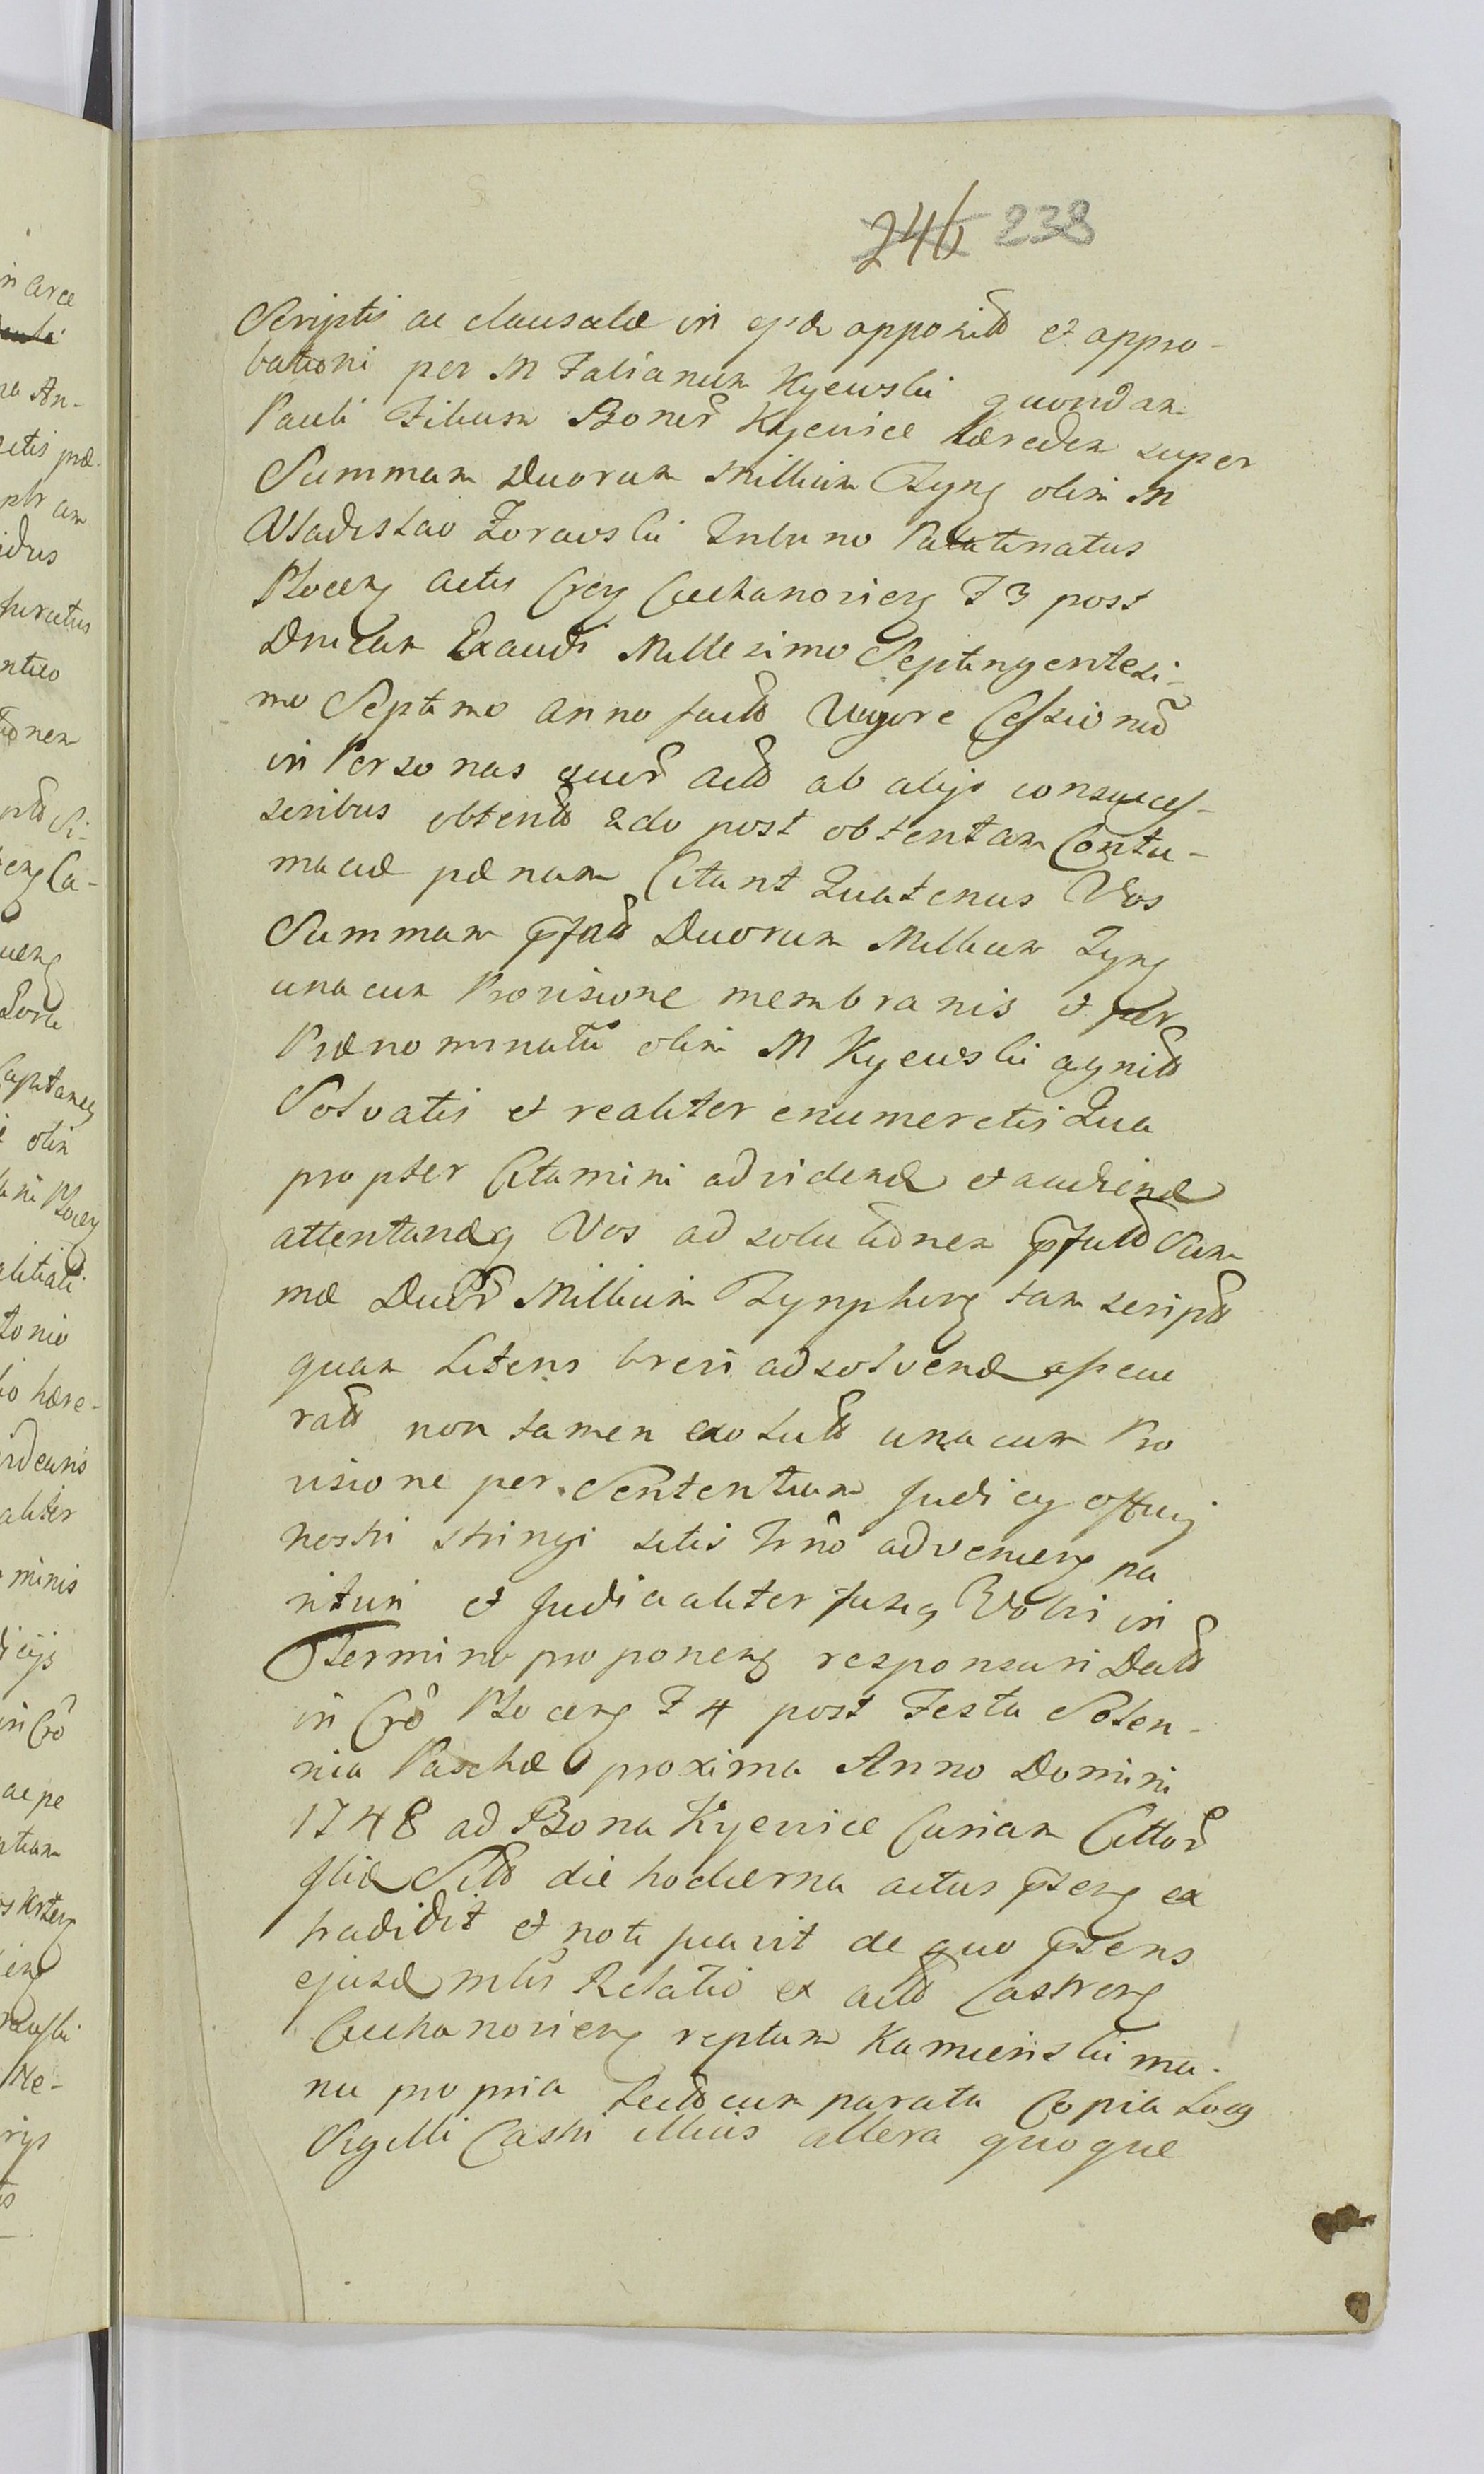 246 238
Scriptis ac clausulæ in ejsd apposit et appro-
bationi per M Fabianum Kijewski quondam
Pauli Filium Bonor Kijewice hæredem super
Summam Duorum Millium Tynf olim M
Vladislao Zorawski Tribuno Palatinatus
Plocen Actis Cren Ciechanovien F 3 post
Dnicam Exaudi Millesimo Septingentesi-
mo Septimo anno fact Vigore Cessionu
in Personas suer act ab alijs consucces-
soribus obtent 2do post obtentam Contu-
maciæ pænam Citant Quatenus Vos
Summam pfat Duorum Millium Tynf
una cum Provisione membranis et per
Prænominatu olim M Kijewski agnit
Solvatis et realiter enumeretis Qua
propter Citamini ad vidend et audiend
attentandq Vos ad solutionem pfat Sum
mæ Duor Millium Tynpher tam script
quam Literis breri ad solvend assecu
rat non tamen exolut una cum Pro
visione per Sententiam Judicij Officij
nostri stringi sitis trno advenien pa
rituri et Judicialiter fusiq Vobis in
Termino proponen responsuri Dat
in Cro Plocen F 4 post Festa Solen-
nia Paschæ proxima Anno Domini
1748 ad Bona Kijewice Curiam Cittor
glie Sit die hodierna actus pten ex
tradidit et notificavit de quo ptens
ejusd mlis Relatio ex act Castren
Ciechanovien reptum Kamienski ma-
nu propria Lect cum parata Copia Locq
Sigilli Castri illius altera quoque